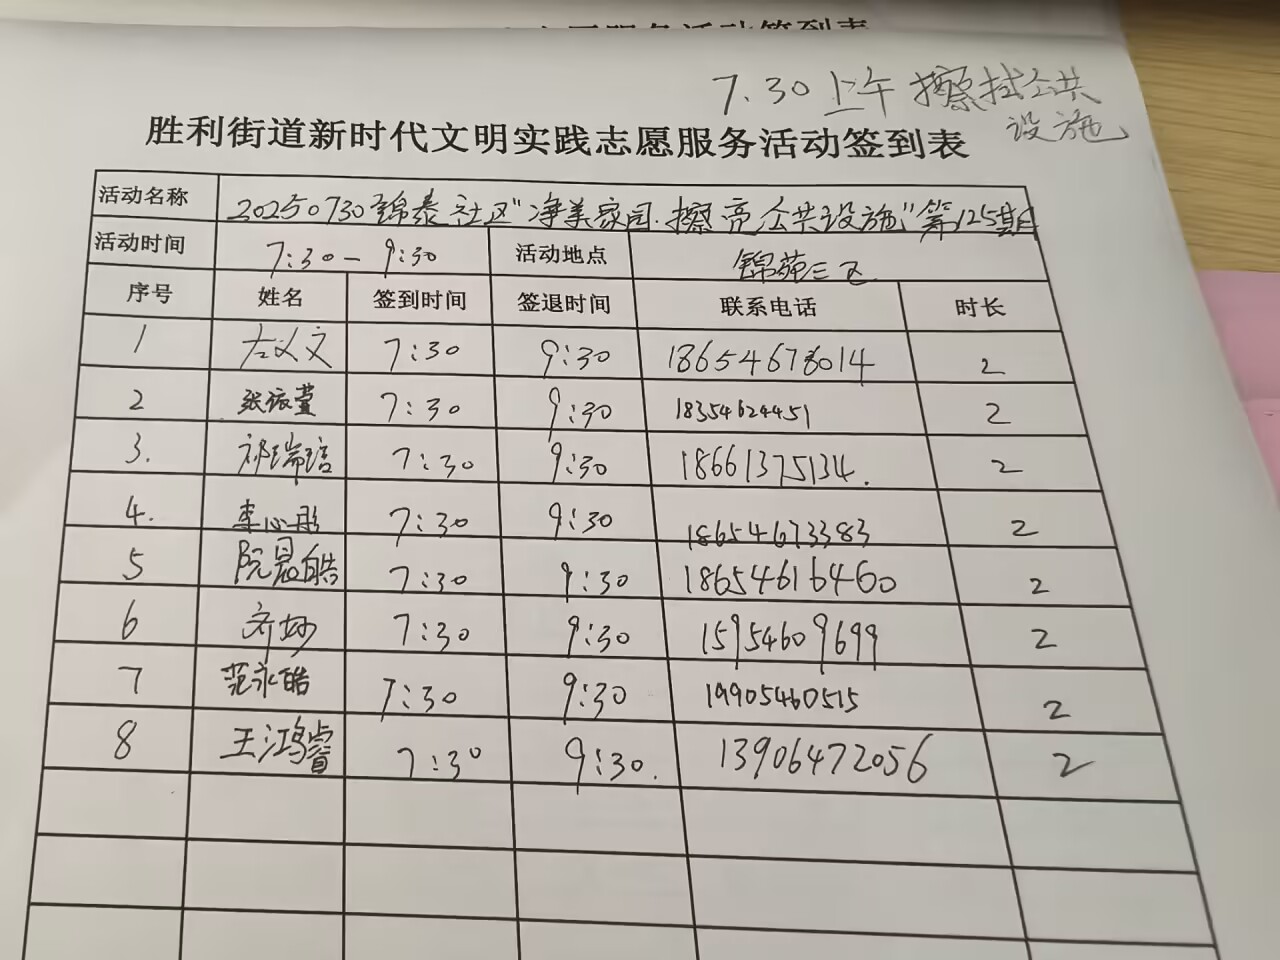 7.30上午擦拭公共
设施
胜利街道新时代文明实践志愿服务活动签到表
活动名称 20250730锦泰社区"净美家园.擦亮公共设施"第125期
活动时间 7:30-9:30 活动地点 锦苑三区
序号 姓名 签到时间 签退时间 联系电话 时长
1 左义文 7:30 9:30 18654678014 2
2 张振萱 7:30 9:30 18354624451 2
3. 祁瑞 7:30 9:30 18661375134. 2
4. 李心彤 7:30 9:30 18654673383 2
5 阮晨皓 7:30 9:30 18654616460 2
6 齐 7:30 9:30 15954609699 2
7 范永皓 7:30 9:30 19905460515 2
8 王鸿睿 7:30 9:30. 13906472056 2